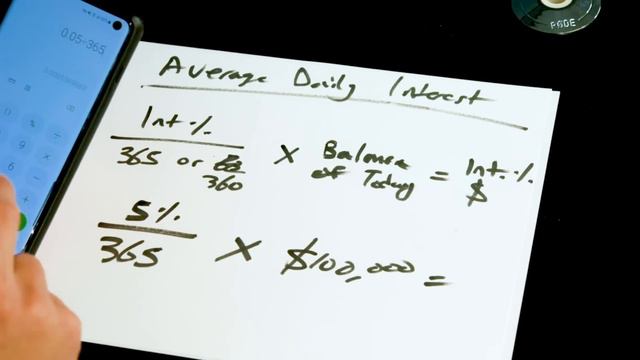 0.05÷365
Average Daily Interest
Int %
365 or
360
× Balance
of Today
= Int. %
$
5%
365
× $100,000 =